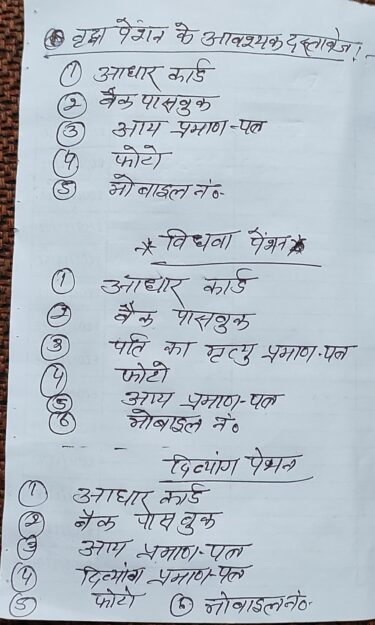 वृद्ध पेंशन के आवश्यक दस्तावेज।
① आधार कार्ड
② बैंक पासबुक
③ आय प्रमाण-पत्र
④ फोटो
⑤ मोबाइल नं०
* विधवा पेंशन *
① आधार कार्ड
② बैंक पासबुक
③ पति का मृत्यु प्रमाण-पत्र
④ फोटो
⑤ आय प्रमाण-पत्र
⑥ मोबाइल नं०
दिव्यांग पेंशन
① आधार कार्ड
② बैंक पासबुक
③ आय प्रमाण-पत्र
④ दिव्यांग प्रमाण-पत्र
⑤ फोटो ⑥ मोबाइल नं०